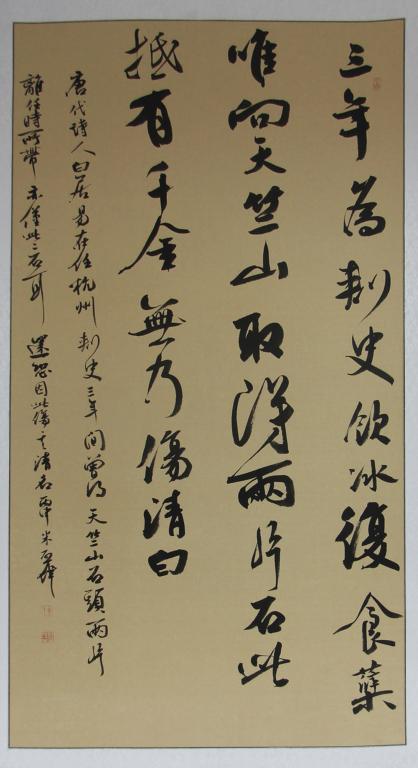 三年為刺史飲冰復食蘗
唯向天竺山取得兩片石此
抵有千金無乃傷清白
唐代詩人白居易在任杭州刺史三年間曾得天竺山石頭兩片
離任時所帶亦僅此二石耳還恐因此傷其清名